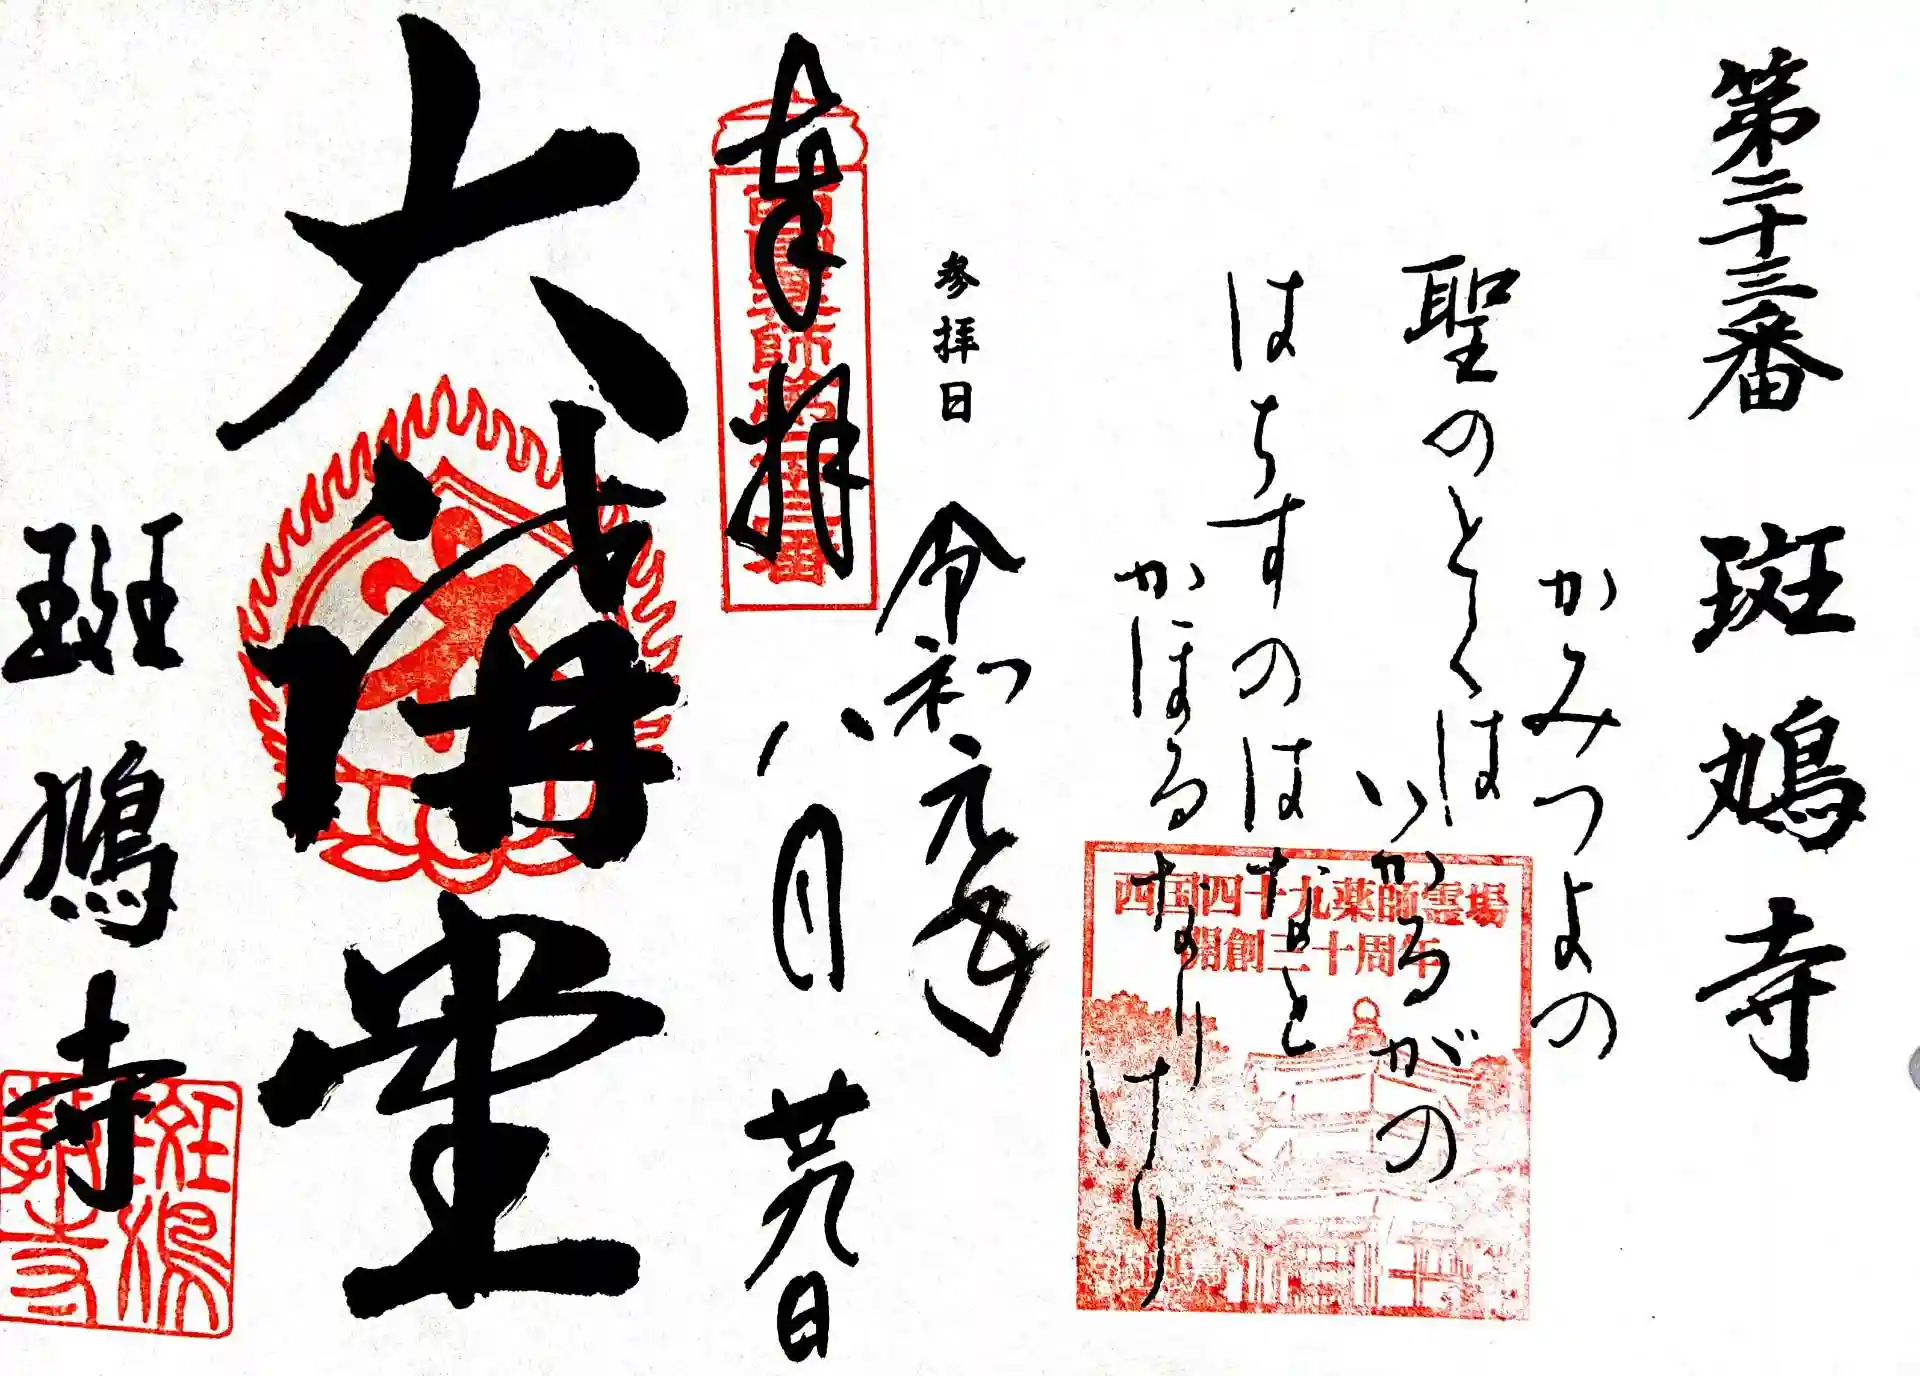 第二十三番 斑鳩寺
かみつよの
聖のとくは
いかるがの
はちすのはなと
かほるなりけり
西国四十九薬師霊場
開創三十周年
参拝日
令和元年
八月廿九日
奉拝
西国薬師第二十三番
大講堂
斑鳩寺
斑鳩
寺